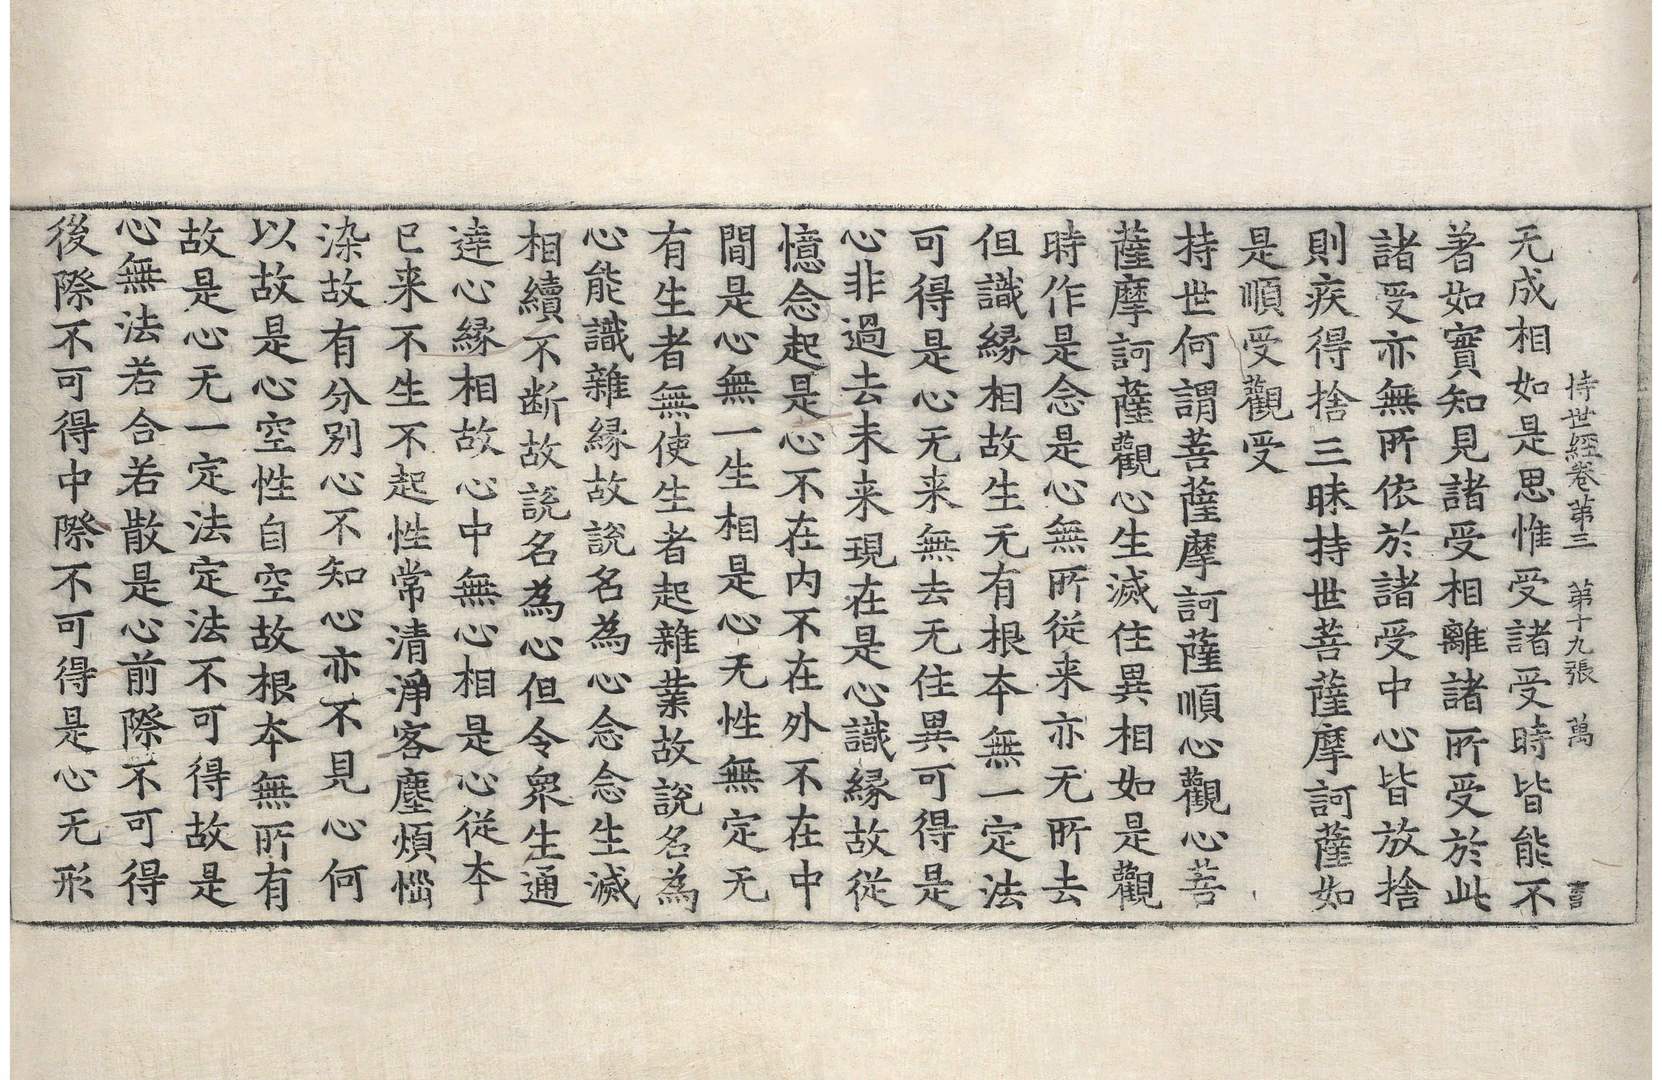 持世經卷第三　第十九張　萬
无成相如是思惟受諸受時皆能不
著如實知見諸受相離諸所受於此
諸受亦無所依於諸受中心皆放捨
則疾得捨三昧持世菩薩摩訶薩如
是順受觀受
持世何謂菩薩摩訶薩順心觀心菩
薩摩訶薩觀心生滅住異相如是觀
時作是念是心無所從来亦无所去
但識緣相故生无有根本無一定法
可得是心无来無去无住異可得是
心非過去未来現在是心識緣故從
憶念起是心不在内不在外不在中
間是心無一生相是心无性無定无
有生者無使生者起雜業故說名為
心能識雜緣故說名為心念念生滅
相續不断故說名為心但令衆生通
達心緣相故心中無心相是心從本
已来不生不起性常清淨客塵煩惱
染故有分别心不知心亦不見心何
以故是心空性自空故根本無所有
故是心无一定法定法不可得故是
心無法若合若散是心前際不可得
後際不可得中際不可得是心无形